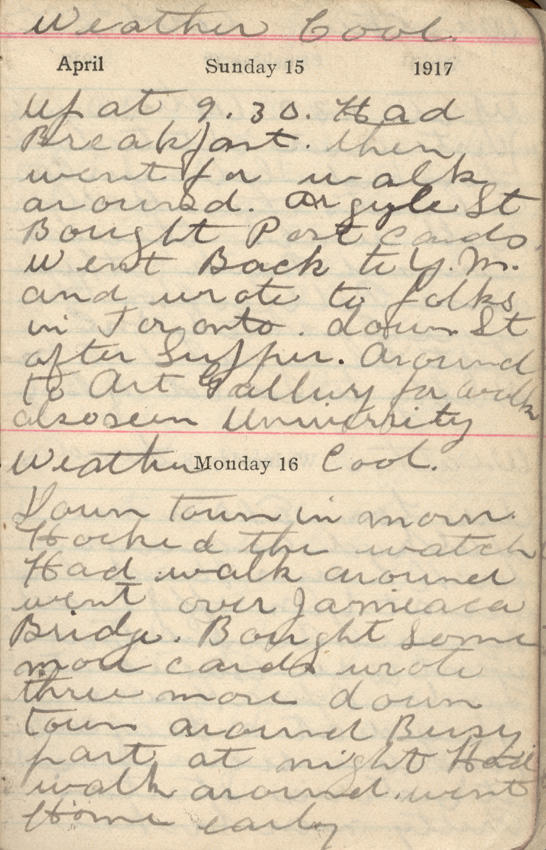 Weather Cool.
April Sunday 15 1917
Up at 9.30. Had
Breakfast. then
went for walk
around. Argyle St
Bought Post cards.
Went Back to Y.M.
and wrote to folks
in Toronto. down St
after Supper. Around
to Art Gallury for walk
also seen University
Weather Monday 16 Cool.
Down town in morn.
Hocked the watch
Had walk around
went over Jamieaca
Bridge. Bought Some
more cards wrote
three more down
town around Busy
part at night Had
walk around. went
Home early